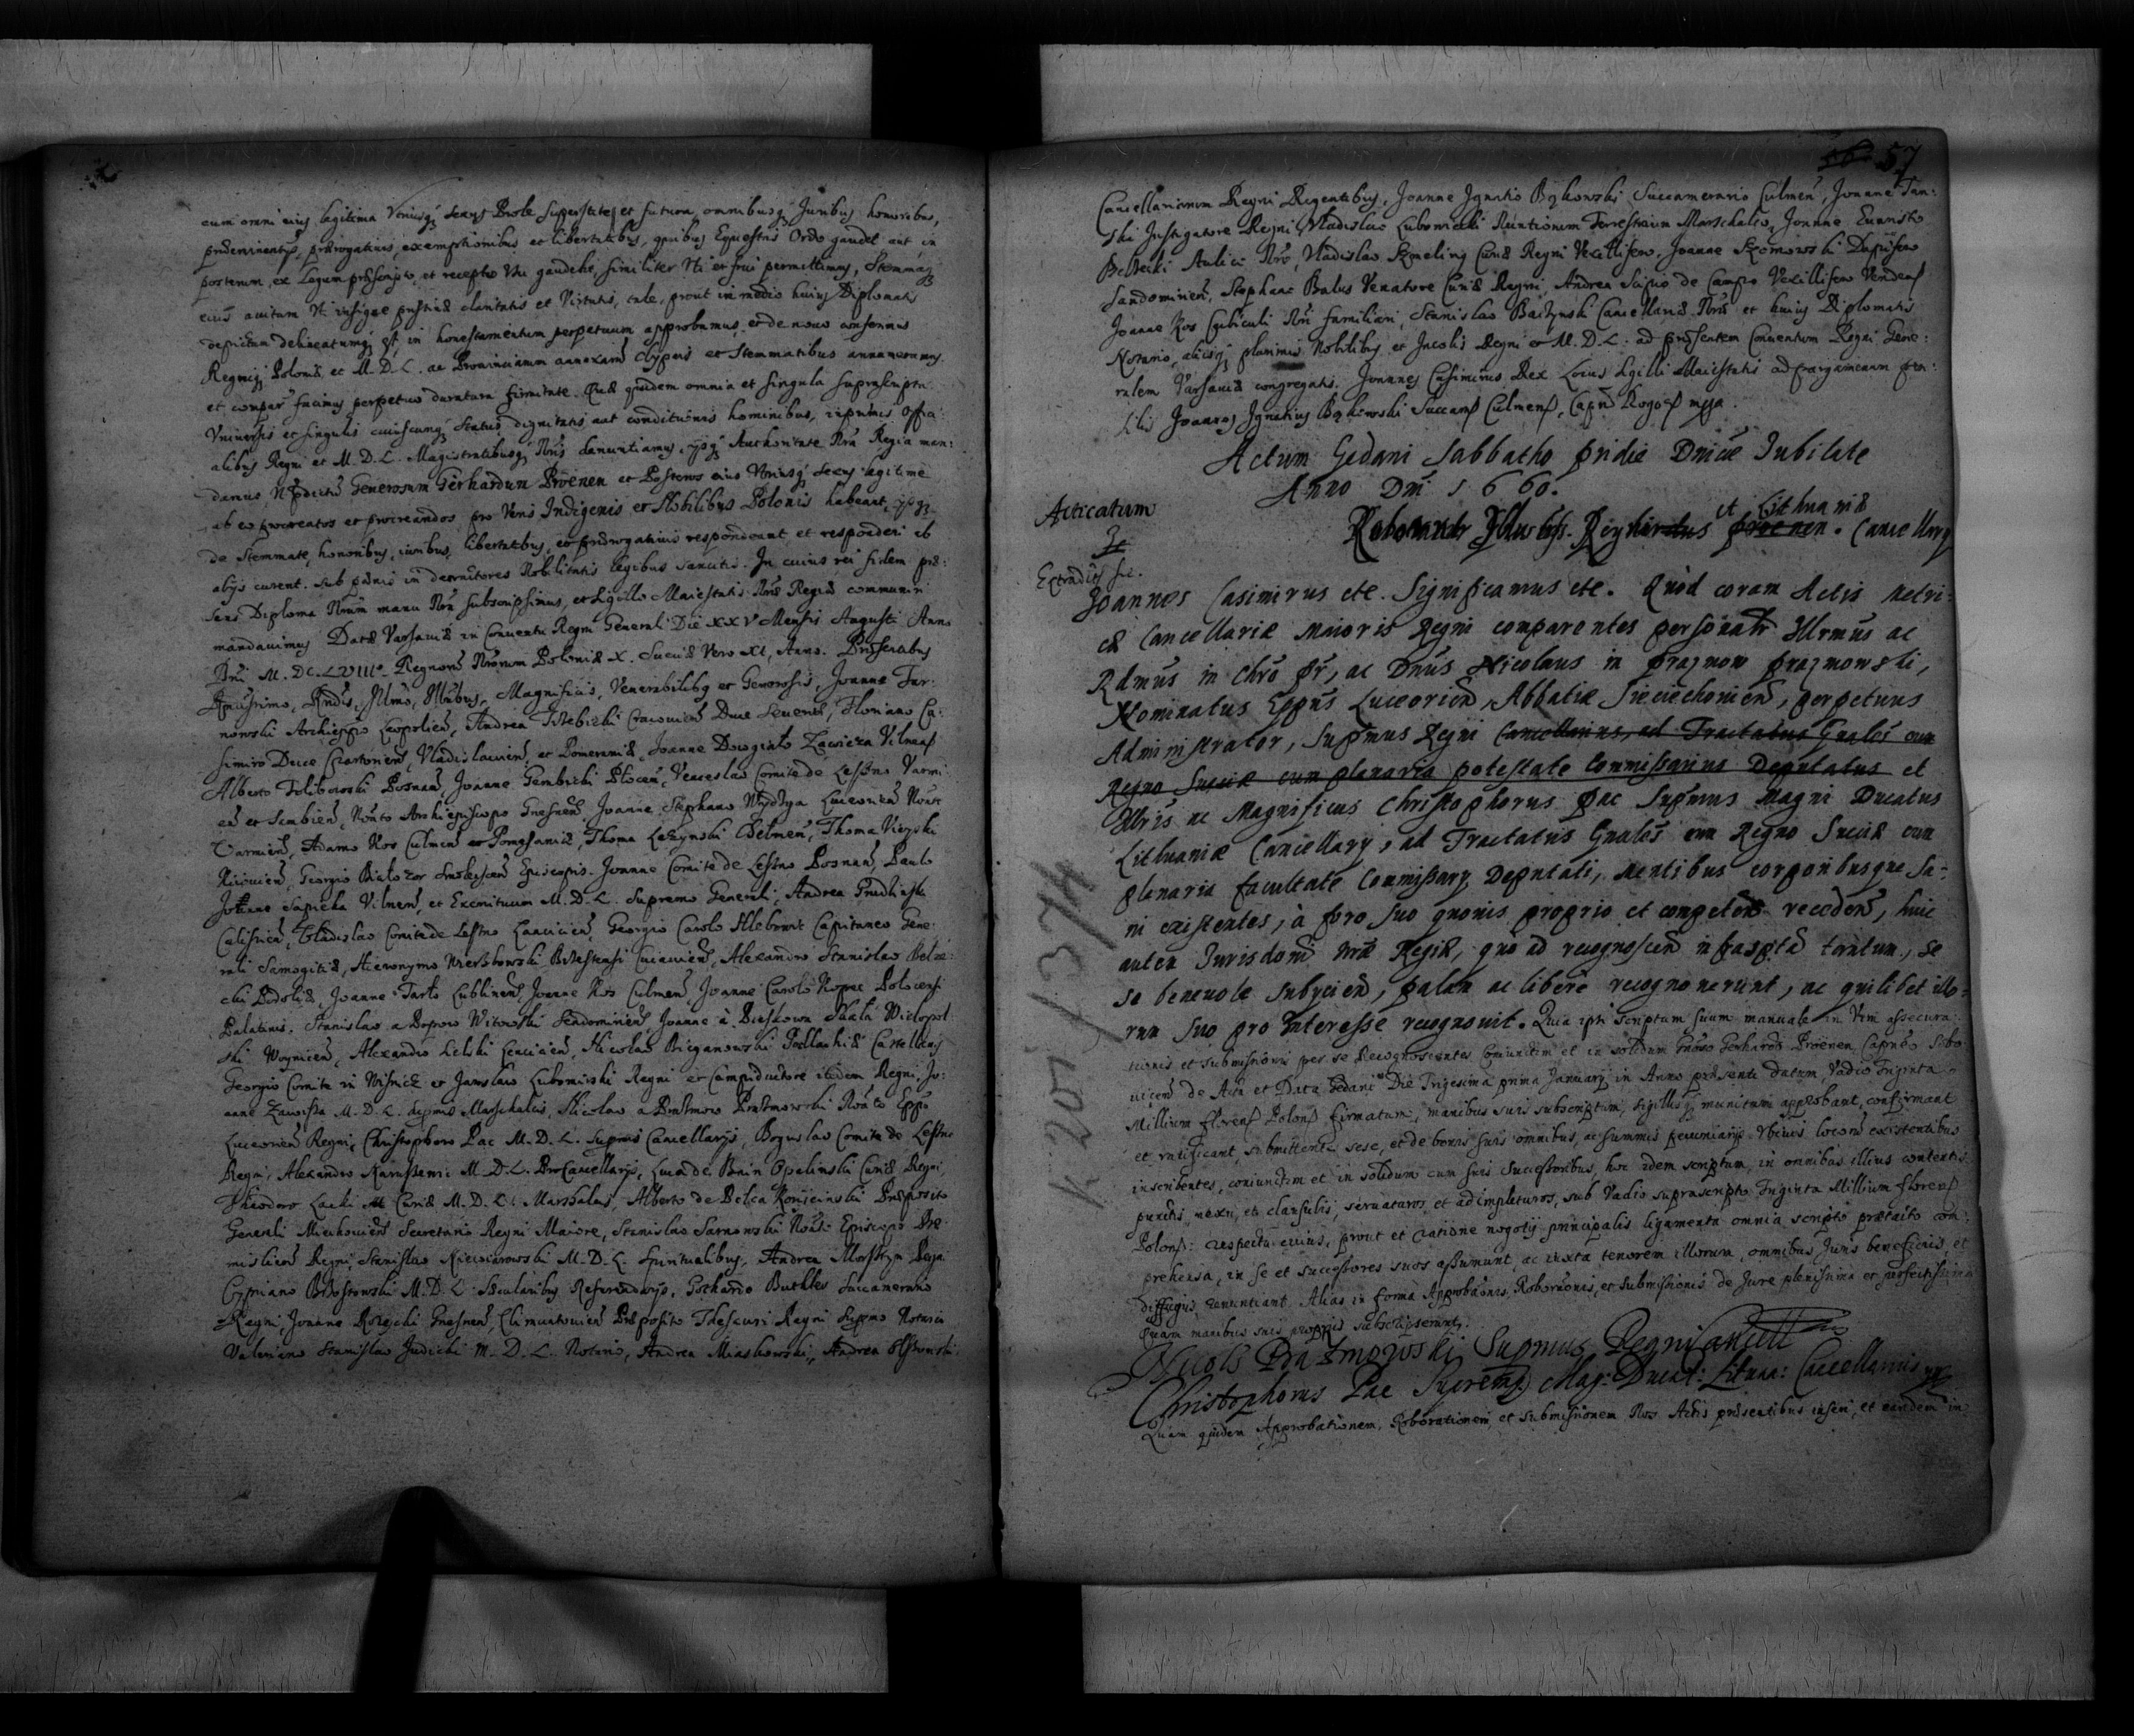 cum omni eius legitima Vtriusq; Sexus Prole Superstite, et futura, omnibusq; Juribus honoribus,
præeminentijs, prærogatiuis, exemptionibus et libertatibus, quibus Equestris Ordo gaudet aut in
posterum, ex Legum præscripto, et recepto Vsu gaudebit, similiter Vti et frui permittimus, Stemmaq;
eius auitum Vt insigne pristinæ claritatis et Virtutis, tale, prout in medio huius Diplomatis
depictum delineatumq; est, in honestamentum perpetuum approbamus, et de nouo conferimus
Regniq; Poloniæ et M. D. L. ac Prouinciarum annexarũ Clypeis et Stemmatibus annumeramus
et compar facimus perpetuo duratura firmitate. Quæ quidem omnia et singula suprascripta
Vniuersis et singulis cuiuscunq; Status, dignitatis, aut conditionis hominibus, inprimis Offici-
alibus Regni et M. D. L. Magistratibusq; Nris denuntiamus, ijsq; Authoritate Nra Regia man:
damus Generosum Gerhardum Pröenen et Posteros eius Vtriusq; Sexus legitime
ab eo procreatos et procreandos pro Veris Indigenis et Nobilibus Polonis habeant, ijsq;
de Stemmate, honoribus, iuribus, libertatibus, et prærogatiuis respondeant et responderi ab
alijs curent. sub pænis in detractores Nobilitatis legibus sancitis. In cuius rei fidem præ:
sens Diploma Nrum manu Nra subscripsimus, et Sigillo Maiestatis Nræ Regiæ communiri
mandauimus Datæ Varsauiæ in Conuentu Regni Generali Die XXV Mensis Augusti Anno
Dni M. DC. LVIII. Regnorũ Nrorum Poloniæ X. Sueciæ Vero XI, Anno. Præsentibus
Rndis, Illmo, Illribus, Magnificis, Venerabilibq et Generosis, Joanne Tar:
nowski Archieppo Leopolien, Andrea Trzebicki Cracouien Duce Seuerie, Floriano Ca:
simiro Duce Czartorien, Vladislauien, et Pomeraniæ, Joanne Dowgiało Zawisza Vilnen
Alberto Tolibowski Posnan, Joanne Gembicki Płocen, Venceslao Comite de Leszno Varmi
en et Sambien, Nõato Archiepiscopo Gnesnen, Joanne Stephano Wydzga Luceorien Noat
Varmien, Adamo Kos Culmen et Pomesaniæ, Thoma Leżynski Chełmen, Thoma Vieyski
Kiiouien, Georgio Białozor Smolescen Episcopis. Joanne Comite de Leszno Posnan, Paulo
Joanne Sapieha Vilnen, et Exercituum M. D. L. Supremo Generali, Andrea Grudzinski
Calisien, Vladislao Comite de Leszno Lancicien, Georgio Carolo Hlebowic Capitaneo Gene:
rali Samogitiæ, Hieronymo Wierzbowski Brzestensi Cuiauien, Alexandro Stanislao Bełze:
cki Podoliæ, Joanne Tarło Lublinen, Joanne Kos Culmen, Joanne Carolo Kopec Polocensi
Palatinis. Stanislao a Popow Witowski Sendomirien, Joanne à Pieskowa Skała Wielopol:
ski Woynicen, Alexandro Lelski Lencicien, Nicolao Bieganowski Podlachiæ Castellanis
Georgio Comite in Wisnicz et Jarosław Lubomirski Regni et Campiductore itidem Regni, Jo:
anne Zawisza M. D. L. supremis Marschalcis, Nicolao a Prażmow Prażmowski Noato Eppo
Luceorien Regni, Christophoro Pac M. D. L. Supremis Cancellarijs, Boguslao Comite de Leszno
Regni, Alexandro Naruszewic M. D. L. ProCancellarijs, Luca de Bnin Opalinski Curiæ Regni,
Theodoro Lacki Curiæ M. D. L. Marschalcis, Alberto de Belca Koryciński Præposito
Generali Miechouien Secretario Regni Maiore, Stanislao Sarnowski Nõato Episcopo Præ:
mislien Regni, Stanislao M. D. L. Spiritualibus, Andrea Morsztyn Regni
Cypriano Brzostowski M. D. L. Secularibus Referendarijs, Gothardo Buthler Succamerario
Regni, Joanne Rożycki Gnesnen, Climuntouien Præposito Thesauri Regni supremo Notario
Valeriano Stanislao Judicki M. D. L. Notario, Andrea Miaskowski, Andrea Olszowski
57
Cancellariarum Regni Regentibus, Joanne Ignatio Bąkowski Succamerario Culmen, Joanne Tan:
ski Instigatore Regni, Vladislao Lubowiecki Nuntiorum Terrestrium Marschalco, Joanne Euaristo
Bełzecki Aulico Nro, Vladislao Szmeling Curiæ Regni Vexillifero, Joanne Szomowski Dapifero
Sandomirien, Stephano Balus Venatore Curiæ Regni, Andrea Scipio de Campo Vexillifero Venden
Joanne Kos Cubiculi Nri familiari, Stanislao Baiżynski Cancellariæ Nræ et huius Diplomatis
Notario, alijsq; plurimis Nobilibus et Incolis Regni et M. D. L. ad præsentem Conuentum Regni Gene:
ralem Varsauiæ congregatis. Joannes Casimirus Rex Locus Sigilli Maiestatis ad pargameum pen:
silis Joannes Ignatius Bąkowski Succams Culmens, Capns Rogoz mpa.
Actum Gedani Sabbatho pridie Dnicæ Jubilate
Anno Dni 1660.
Acticatum
et Lithuaniæ
Cancellary
Extraditũ
Joannes Casimirus etc. Significamus etc. Quod coram Actis Metri:
cæ Cancellariæ Maioris Regni comparentes personatr Illrmus ac
Rdmus in Chro Pr, ac Dnus Nicolaus in Prażmow Prażmowski,
Nominatus Eppus Luceorien, Abbatiæ Sieciechouien, perpetuus
Administrator, Supmus Regni Cancellarius, ad Tractatus Gnales cum
Regno Sueciæ cum plenaria potestate Commissarius Deputatus et
Illris ac Magnificus Christophorus Pac Supmus Magni Ducatus
Lithuaniæ Cancellary, ad Tractatus Gnales cum Regno Sueciæ cum
plenaria facultate Commissary Deputati, mentibus corporibusque sa-:
ni existentes, à foro suo quouis proprio et competen receden, huic
autem Jurisdoni Nræ Regiæ, quo ad recognoscen infrascpta tantum, se
se beneuole subycien, palam ac libere recognouerunt, ac quilibet illo:
rum suo pro interesse recognouit. Quia ipsi scriptum suum manuale in Vim assecura:
tionis et submissionis per se Recognoscentes Coniunctim et in solidum Gnoso Gerhardo Proenen, Capneo Sobo
uicen de Actu et Datu Gedani Die Trigesima prima January in Anno præsenti datum Vadio Triginta
Millium Floren Polon firmatum, manibus suis subscriptum, sigillisq; munitum approbant, confirmant
et ratificant, submittente sese, et de bonis suis omnibus, ac summis pecuniarijs Vbiuis locorũ existentibus
inscribentes, coniunctim et in solidum cum suis Successoribus, hoc idem scriptum in omnibus illius contentis
punctis, nexu, et clausulis, seruaturos, et adimpleturos, sub Vadio suprascripto Triginta Millium floren
Polon: respectu cuius, prout et ratione negotij principalis ligamenta omnia scripto prætacto com:
prehensa, in se et successores suos assumunt, ac iuxta tenorem illorum, omnibus Juris beneficijs, et
diffugijs, renuntiant. Alias in forma Approbaonis, Roboraonis, et submissionis de Jure plenissima et perfectissima
Quam manibus suis proprijs subscripserunt.
Nicols Prażmowski Supmus Regni Cancell
Christophorus Pac Supremq Mag: Ducat: Lituan: Cancellarius mp
Quam quidem Approbationem, Roborationem, et submissionem Nos Actis præsentibus inseri, et eandem in
K 207/1374